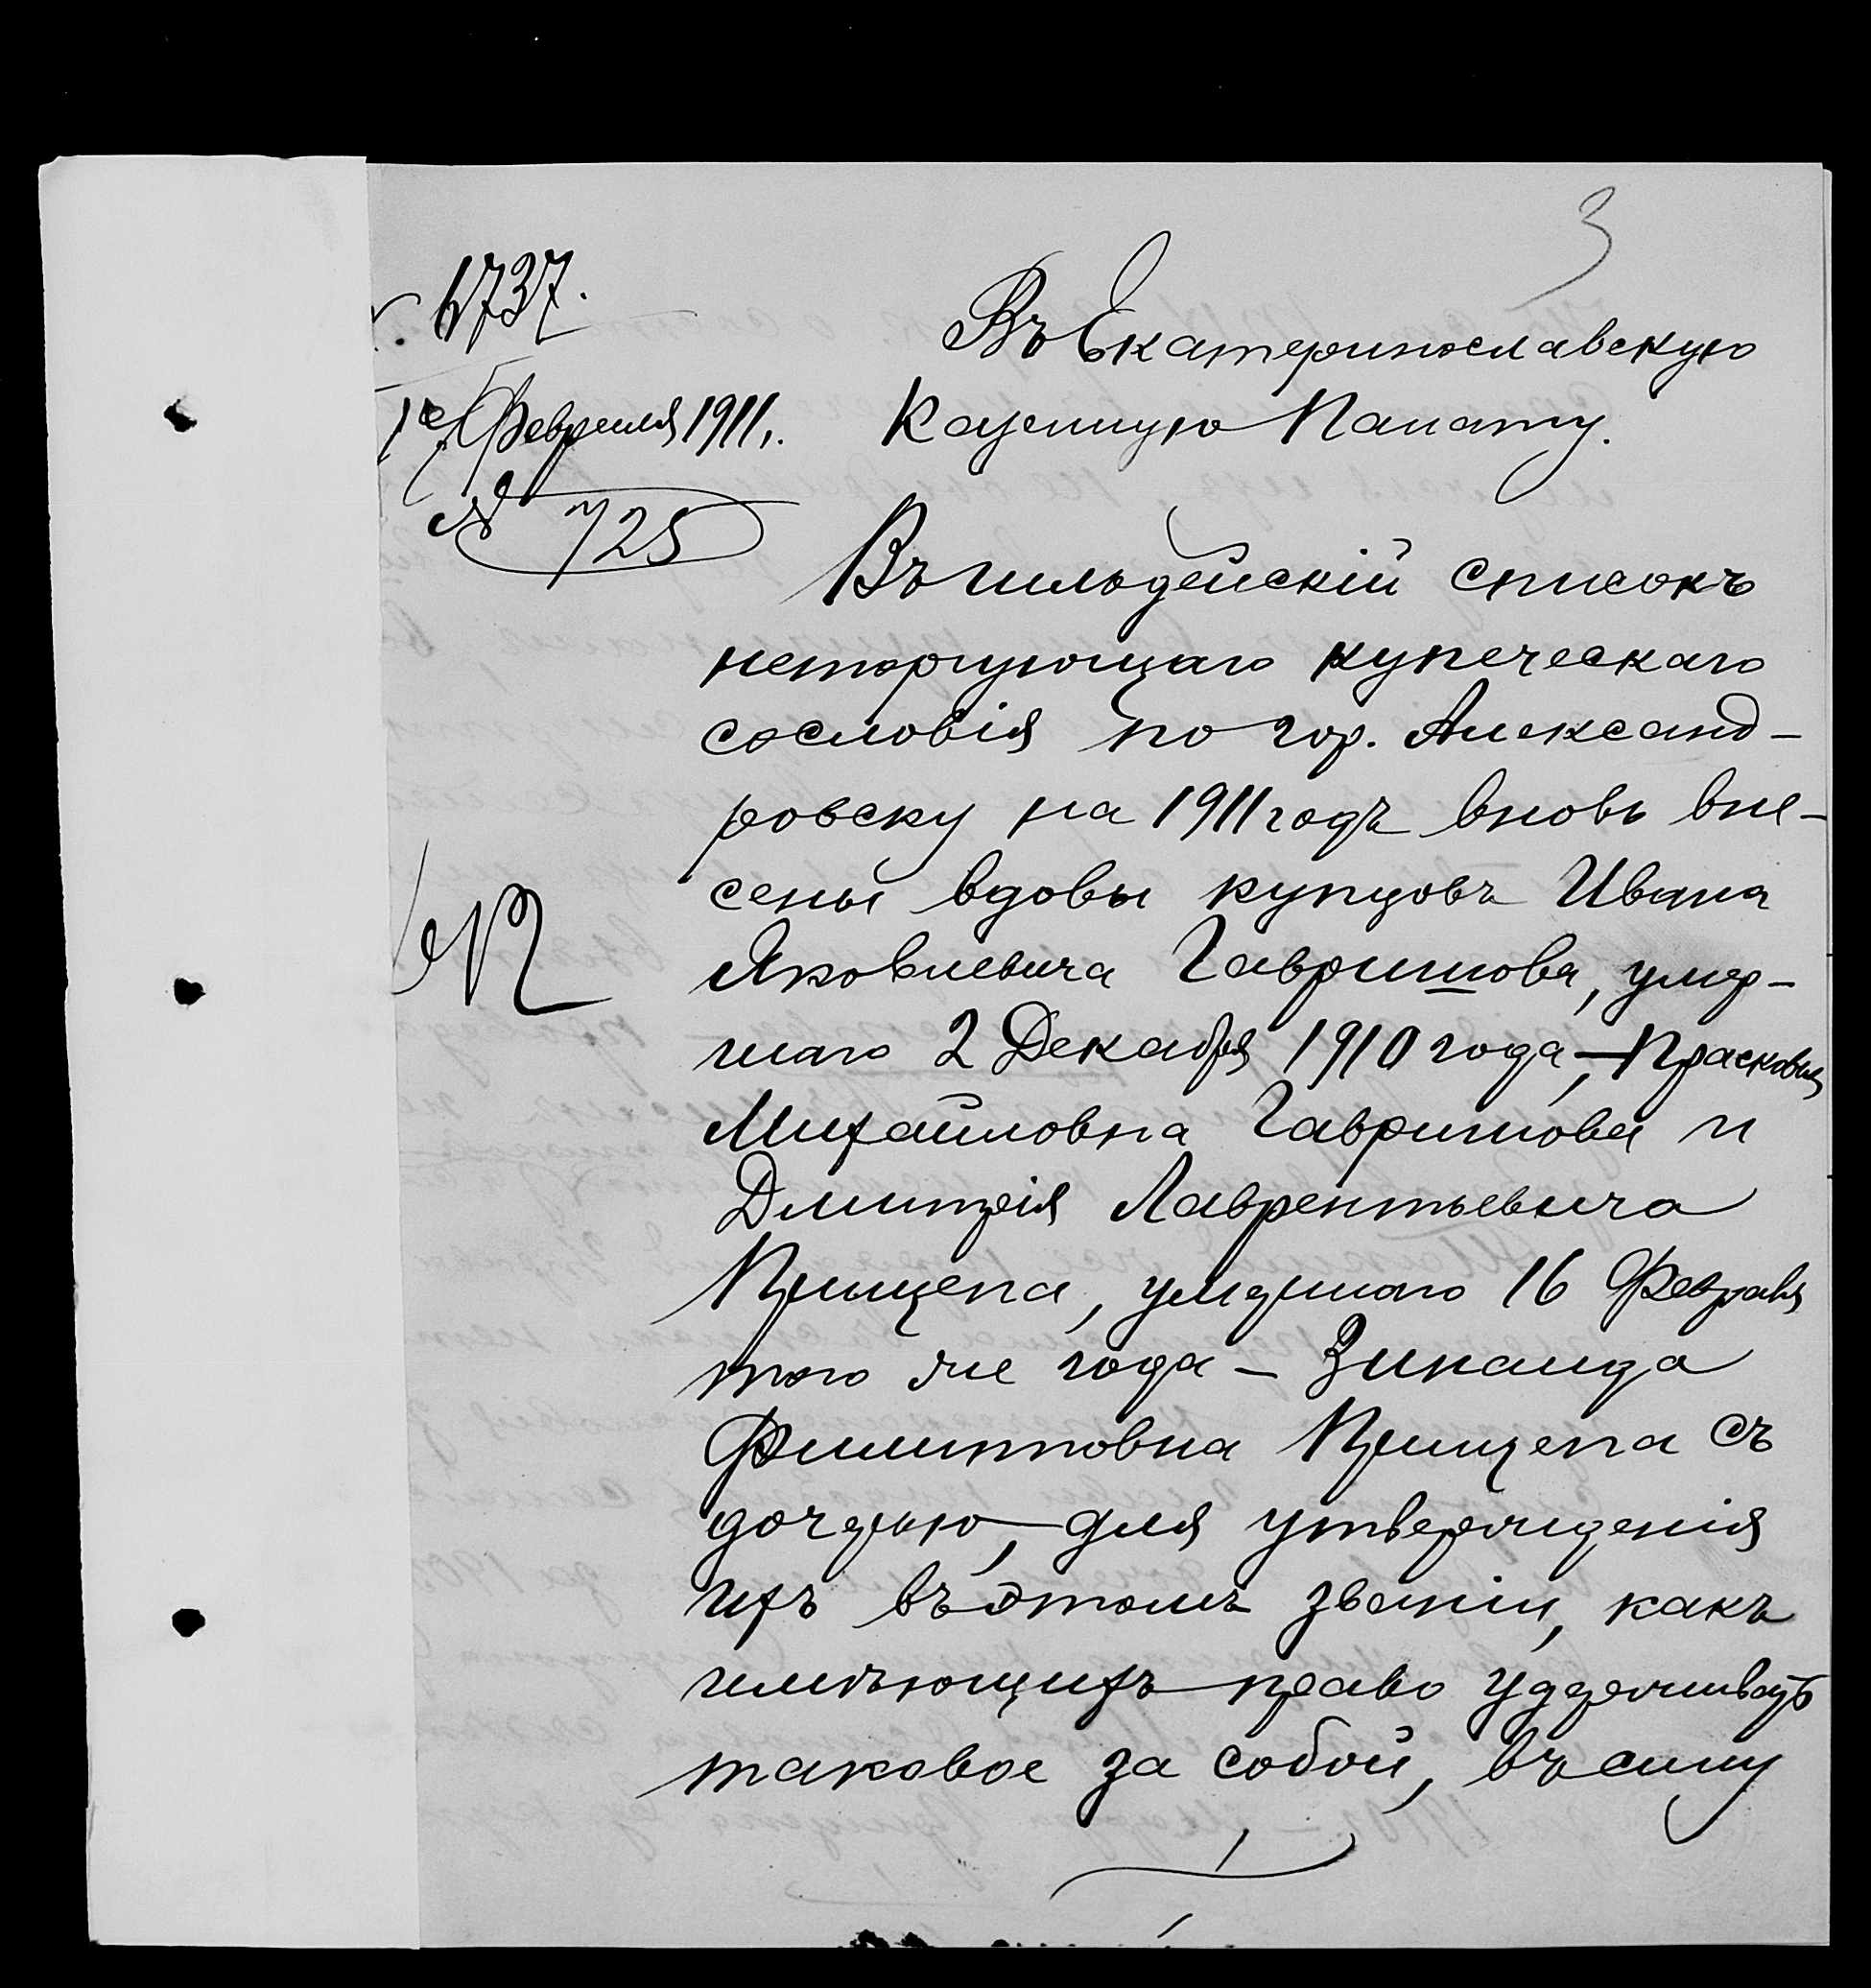 3
6737.
Въ Екатеринославскую
Февраля 1911 г.
Казенную Палату.
№ 725
Въ гильдейскій списокъ
неторгующаго купеческаго
сословія по гор. Александ-
ровску на 1911 годъ вновь вне-
сены вдовы купцовъ Ивана
Яковлевича Гавришова, умер-
шаго 2 Декабря 1910 года, – Прасковья
Михайловна Гавришова и
Дмитрія Лаврентьевича
Прищепа, умершаго 16 Февраля
того же года – Зинаида
Филипповна Прищепа съ
дочерью, для утвержденія
ихъ въ этомъ званіи, какъ
имѣющихъ право удерживать
таковое за собой, въ силу